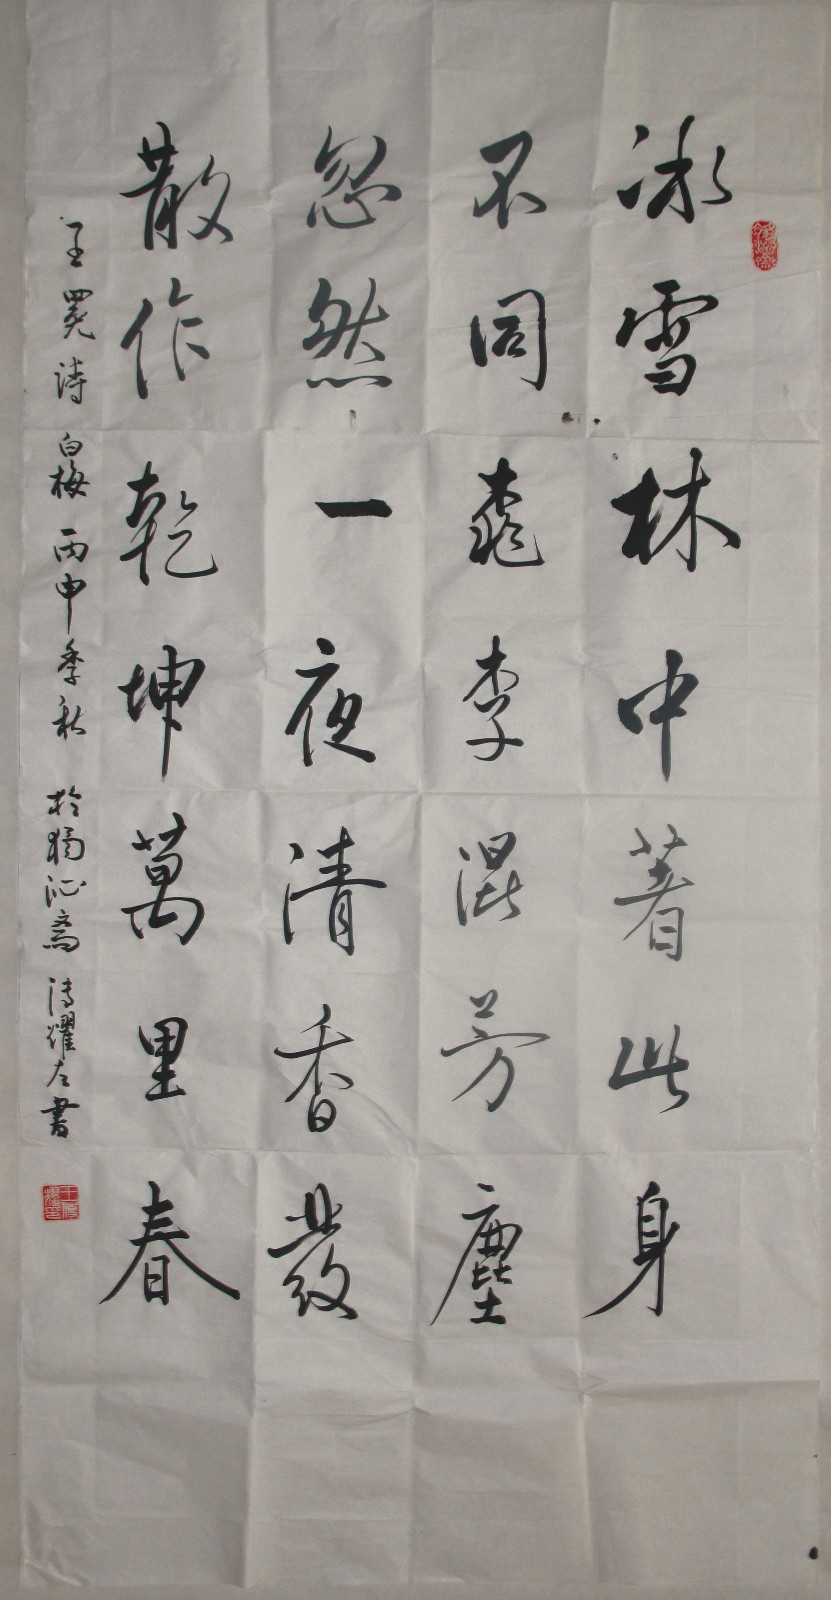 冰雪林中著此身
不同桃李混芳塵
忽然一夜清香發
散作乾坤萬里春
王冕詩 白梅 丙申季秋 於 沁齋 耀左書